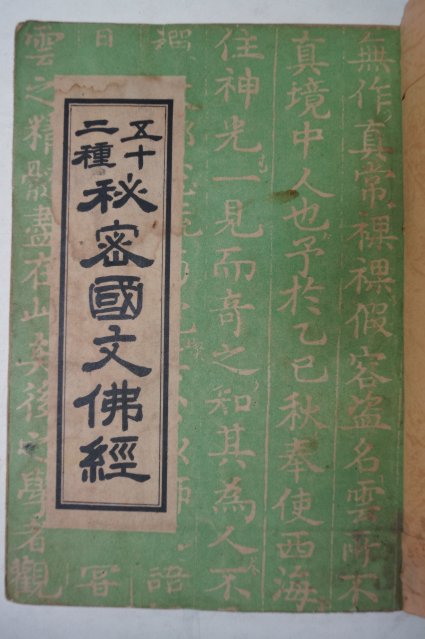 五十
二種
秘密國文佛經
無作真常裸裸假容盜名雲
真境中人也予於乙巳秋奉使西海
住神光一見而奇之知其為人不
師語
日
雲之精盡在此矣後之學者觀